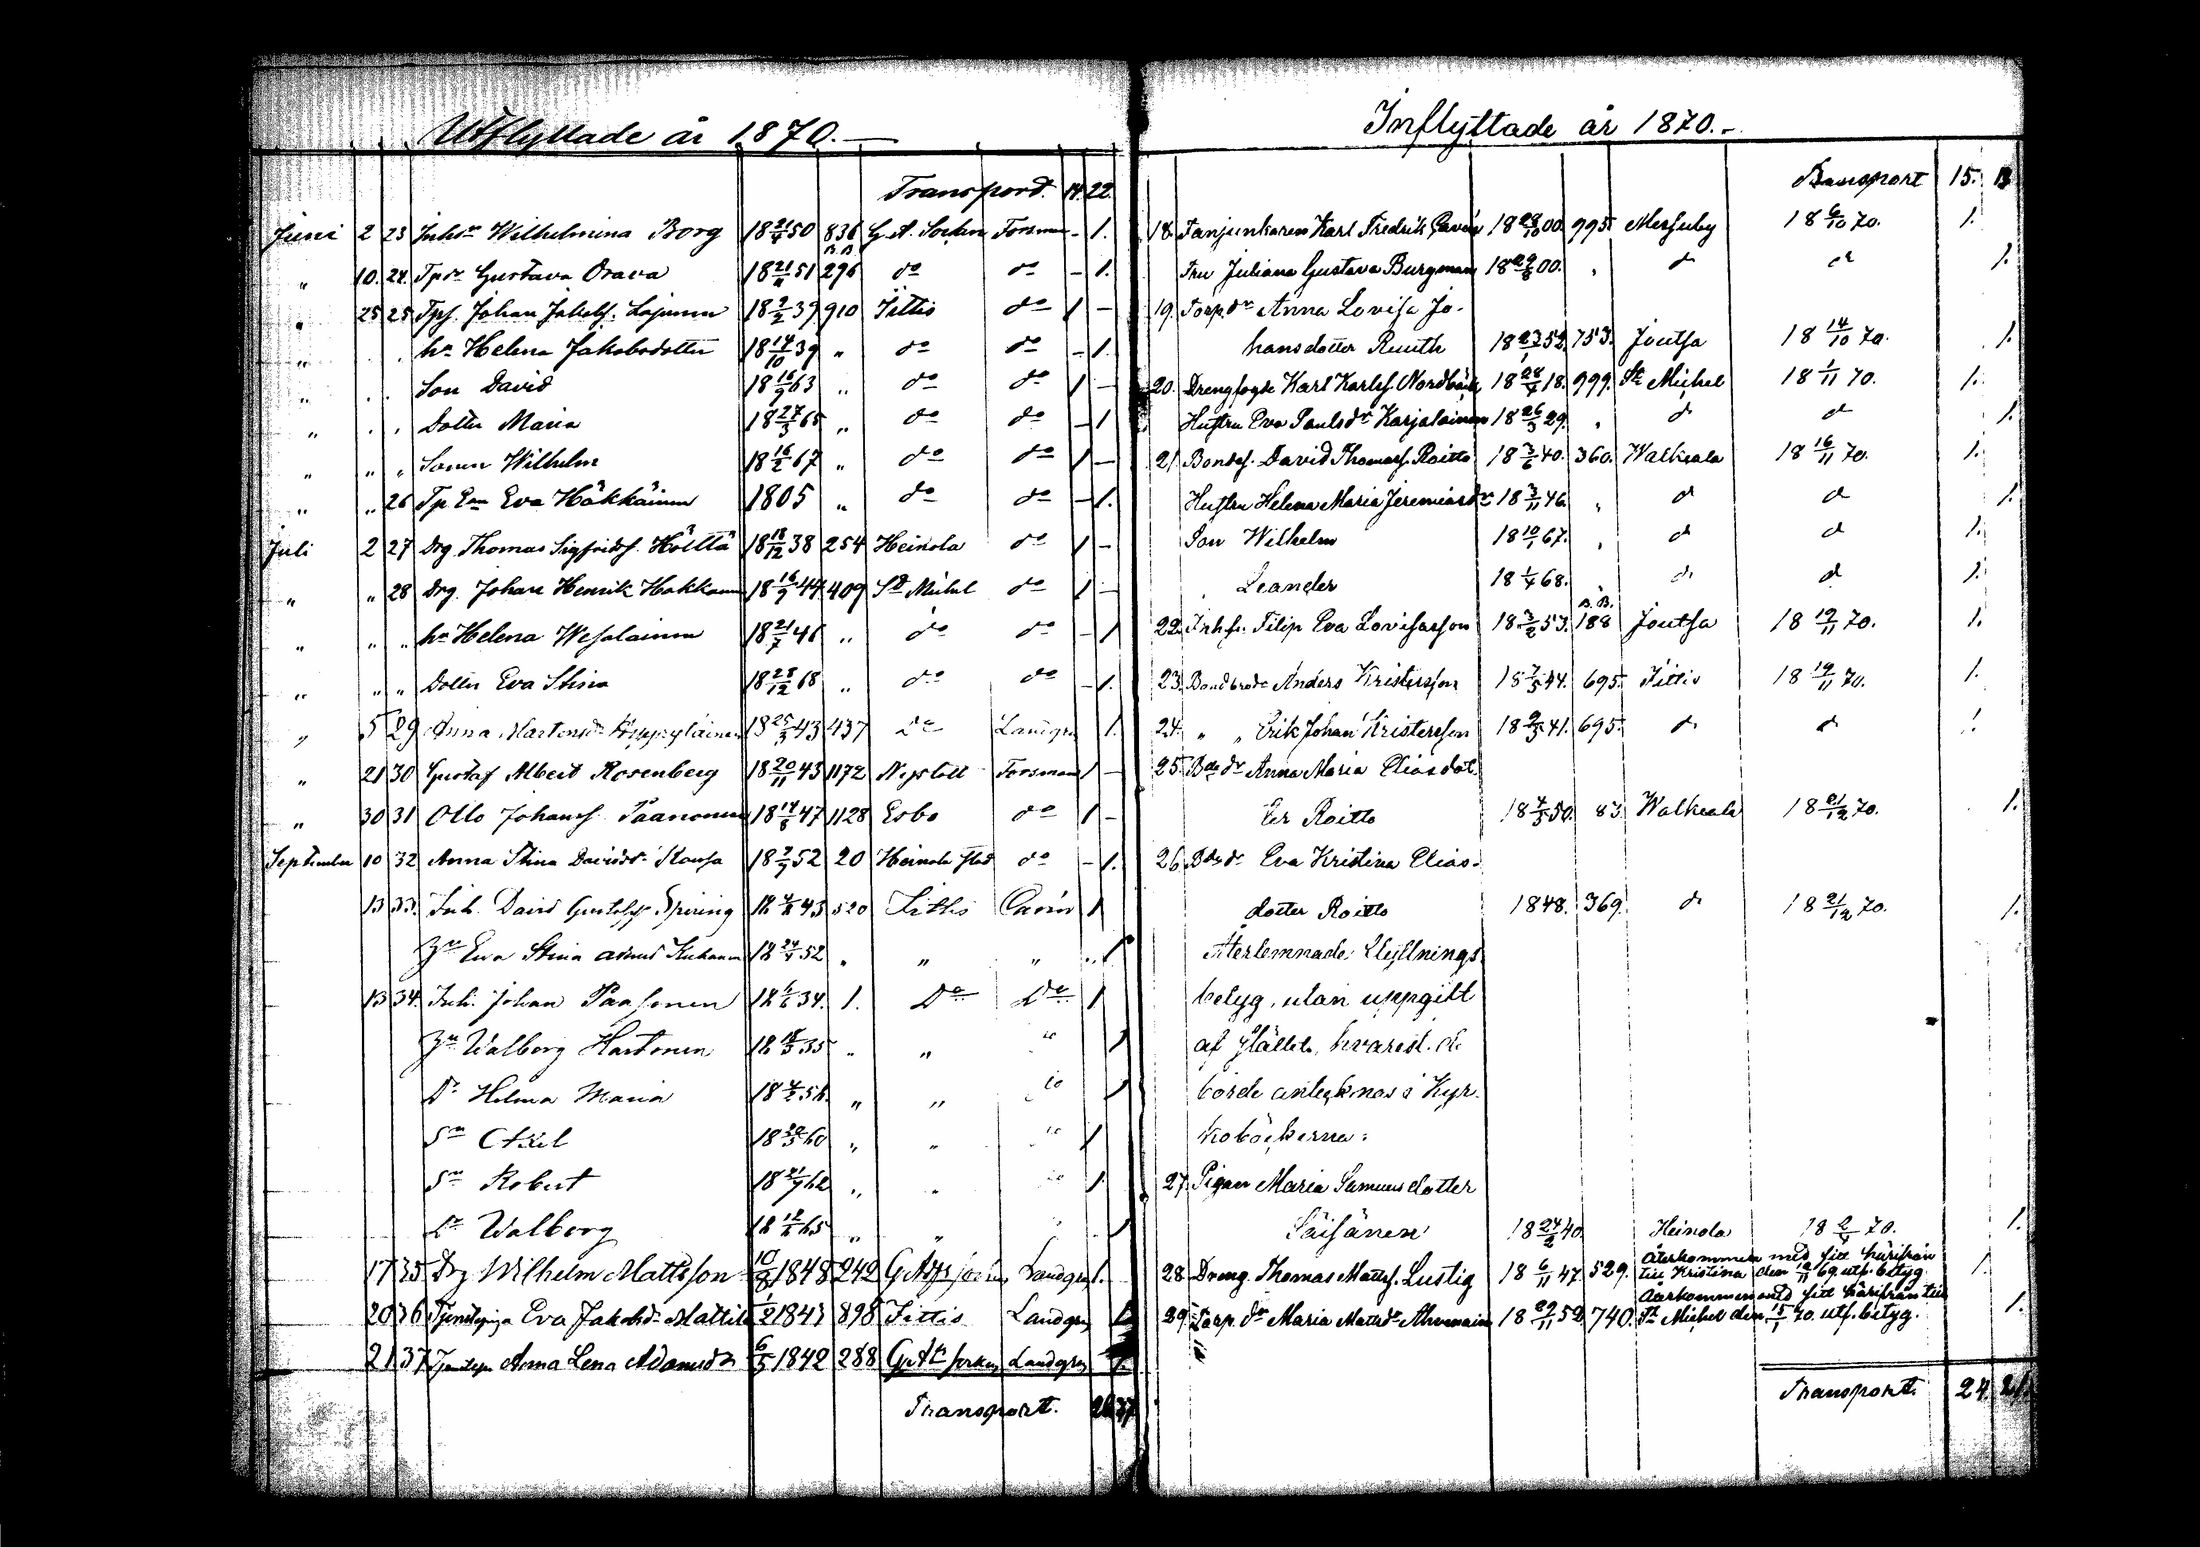 Utflyttade år 1870.
Transport. 14. 22.
Juni 2 23 Inhdr Wilhelmina Borg 18 21/4 50 836 G. A. Socken Forsman - 1.
" 10. 24. Tpdr Gustava Orava 18 21/11 51 B.B. 296 do do - 1.
" 25 25 Tps. Johan Jakobs. Lojunen 18 2/2 39 910 Jittis do 1 -
" " hu Helena Jakobsdotter 18 14/10 39 " do do - 1.
" " Son David 18 16/9 63 " do do 1 -
" " Dotter Maria 18 27/3 65 " do do - 1
" " " Sonen Wilhelm 18 16/2 67 " do do 1 -
" " 26 Tp Ean Eva Häkkäinen 1805 " do do - 1.
Juli 2 27 Drg. Thomas Sigfridss. Hölttä 18 18/12 38 254 Heinola do 1 -
" " 28 Drg. Johan Henrik Hokkanen 18 16/9 44 409 St Michel do 1 -
" " " hu Helena Wesalainen 18 21/7 46 " do do - 1
" " " Dotter Eva Stina 18 28/12 68 " do do - 1.
" 5 29 Anna Mårtensdr 18 25/3 43 437 do Landgren 1.
" 21 30 Gustaf Albert Rosenberg 18 20/11 43 1172 Nystad Forsman 1 -
" 30 31 Otto Johanss. Paanonen 18 14/8 47 1128 Esbo do 1 -
September 10 32 Anna Stina Davidsdr Kansa 18 2/9 52 20 Heinola stad do - 1.
13 33. Inh. David Gustafss. Spiring 43 520 Jittis Cavén 1
Hu Eva Stina 18 24/4 52 " " " 1
13 34. Inh. Johan Paasonen 34. 1. Do Do 1
Hu Walborg Hartonen 18 18/3 35 " " " 1
Dr Helma Maria " " " 1
Sn Axel 60 " " " 1
Sn Robert 18 21/9 62 " " " 1
Dr Walborg 65 " " " 1
17 35 Drg Wilhelm Mattsson 10/8 1848 242 Landgren 1.
20 36 Tjenstepiga Eva Jakobsdr 1/2 1843 898 Jittis Landgren
21 37 Anna Lena Adamsdr 6/5 1842 288 Landgren 1.
Transport.
Inflyttade år 1870.
Transport 15. 13
18. Fanjunkaren Karl Fredrik Cavén 18 28/10 00. 995. Messuby 18 6/10 70. 1.
Fru Juliana Gustava Burgman 18 29/8 00. " d d 1.
19. Torp.dr Anna Lovisa Jo-
hansdotter Ruuth 18 23/1 52. 753. Joutsa 18 14/10 70. 1.
20. Drengfogde Karl Karlss. Nordbäck 18 28/4 18. 999. St Michel 18 1/11 70. 1.
Hustru Eva Paulsdr Karjalainen 18 26/5 29. " d d 1.
21. Bondes. David Thomass. Roitto 18 3/6 40. 360. Walkeala 18 16/11 70. 1.
Hustru Helena Maria Jeremiasdr 18 3/11 46. " d d 1.
Son Wilhelm 18 10/1 67. " d d 1.
" Leander 18 1/4 68. " d d 1.
22. Inh.s. Filip Eva Lovisasson 18 3/2 53. B.B. 188 Joutsa 18 19/11 70. 1.
23. Bondbrodr Anders Kristersson 18 7/5 44. 695. Jittis 18 19/11 70. 1.
24. " " Erik Johan Kristersson 18 2/3 41. 695. d d 1.
25. Bdedr Anna Maria Eliasdot-
ter Roitto 18 4/5 50. 83. Walkeala 18 21/12 70. 1.
26. Bdedr Eva Kristina Elias-
dotter Roitto 1848. 369. d 18 21/12 70. 1.
Återlemnade flyttnings-
betyg, utan uppgift
af stället, hvarest de
borde antecknas i Kyr-
koböckerna:
27. Pigan Maria Samuelsdotter
Säisänen 18 24/2 40. Heinola 70. 1.
28. Dreng. Thomas Mattss. Lustig 18 6/11 47. 529. Återkommen med sitt härifrån
till Kristina den 12/11 69. utf. betyg. 1.
29. Torp. dr Maria Mattsdr Ahvenainen 18 29/11 52. 740. Återkommen med sitt härifrån till
St Michel den 15/1 70. utf. betyg. 1.
Transport. 24. 21.